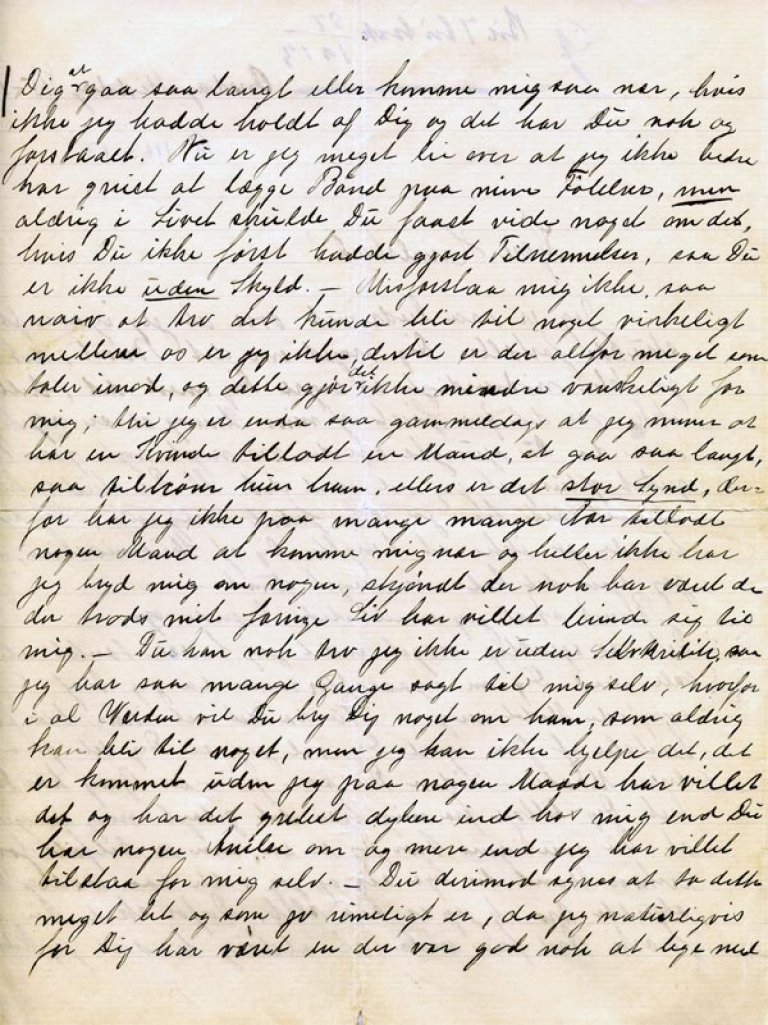 Dig at gaa saa langt eller komme mig saa nær, hvis
ikke jeg hadde holdt af Dig og det har Du nok og
forstaaet. Nu er jeg meget lei over at jeg ikke bedre
har greiet at lægge Baand paa mine Følelser, men
aldrig i Livet skulde Du faaet vide noget om det,
hvis Du ikke først hadde gjort Tilnermelser, saa Du
er ikke uden Skyld. — Misforstaa mig ikke, saa
naiv at tro det kunde bli til noget virkeligt
mellem os er jeg ikke, dertil er der altfor meget som
taler imod, og dette gjør det ikke mindre vanskeligt for
mig; thi jeg er enda saa gammeldags at jeg mener at
har en Kvinde tilladt en Mand, at gaa saa langt,
saa tilhører hun ham, ellers er det stor Synd, der=
for har jeg ikke paa mange mange Aar tilladt
nogen Mand at komme mig nær og heller ikke har
jeg bryd mig om nogen, skjøndt der nok har været de
der trods mit farige Liv har villet binde sig til
mig. — Du kan nok tro jeg ikke er uden Selvkritik, saa
jeg har saa mange Gange sagt til mig selv, hvorfor
i al Verden vil Du bry Dig noget om ham, som aldrig
kan bli til noget, men jeg kan ikke hjelpe det, det
er kommet uden jeg paa nogen Maade har villet
det og har det grebet dybere ind hos mig end Du
har nogen Anelse om og mere end jeg har villet
tilstaa for mig selv. — Du derimod synes at ta dette
meget let og som jo rimeligt er, da jeg naturligvis
for Dig har været en der var god nok at lege med